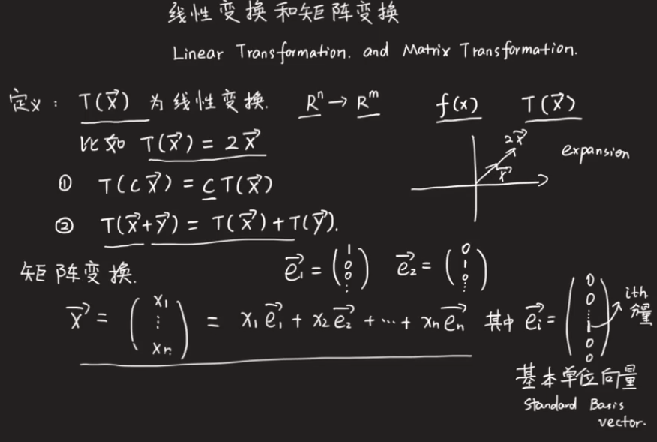 线性变换和矩阵变换
Linear Transformation. and Matrix Transformation.
定义: T(x⃗) 为线性变换. Rⁿ → Rᵐ f(x) T(x⃗)
比如 T(x⃗) = 2x⃗
2x⃗
x⃗
expansion
① T(cx⃗) = cT(x⃗)
② T(x⃗+y⃗) = T(x⃗)+T(y⃗).
矩阵变换. e⃗₁ = (1 0 0 ⋮) e⃗₂ = (0 1 0 ⋮)
x⃗ = (x₁ ⋮ xₙ) = x₁e⃗₁ + x₂e⃗₂ + ⋯ + xₙe⃗ₙ 其中 e⃗ᵢ = (0 0 ⋮ 1 0 0)
ith
分量
基本单位向量
Standard Basis
vector.